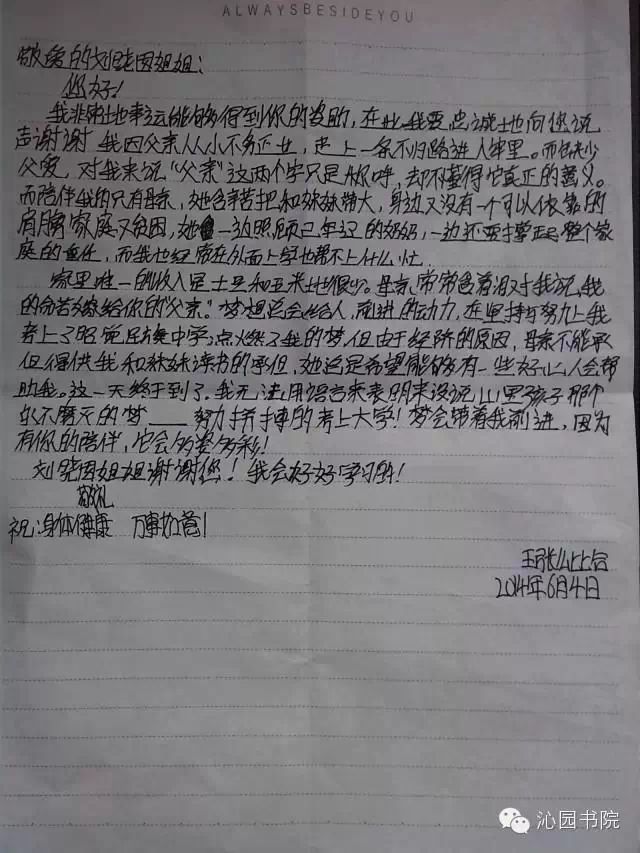 ALWAYSBESIDEYOU
敬爱的刘晓因姐姐:
您好!
我非常地幸运能够得到你的资助,在此我要忠诚地向您说
声谢谢 我因父亲从小不务正业,走上一条不归路进入牢里。而缺少
父爱,对我来说"父亲"这两个字只是称呼,却不懂得它真正的意义。
而陪伴我的只有母亲,她含辛苦把和妹妹带大,身边又没有一个可以依靠的
肩膀家庭又贫困,她一边照顾已年迈的奶奶,一边还要撑起整个家
庭的重任,而我也经常在外面上学也帮不上什么忙.
家里唯一的收入是土豆和玉米地很少。母亲常常含着泪对我说,我
的命苦嫁给你的"父亲"。梦想总会给人,前进的动力,在坚持与努力上我
考上了昭觉民族中学,点燃了我的梦但由于经济的原因,母亲不能承
但得供我和妹妹读书的承但,她总是希望能够有一些好心人会帮
助我。这一天终于到了.我无法用语言来表明来没说,山里孩子那个
永不磨灭的梦——努力拼搏的考上大学!梦会带着我前进,因为
有你的陪伴,它会多姿多彩!
刘晓因姐姐谢谢您!我会好好学习的!
敬礼
祝:身体健康 万事如意!
2014年6月4日
沁园书院